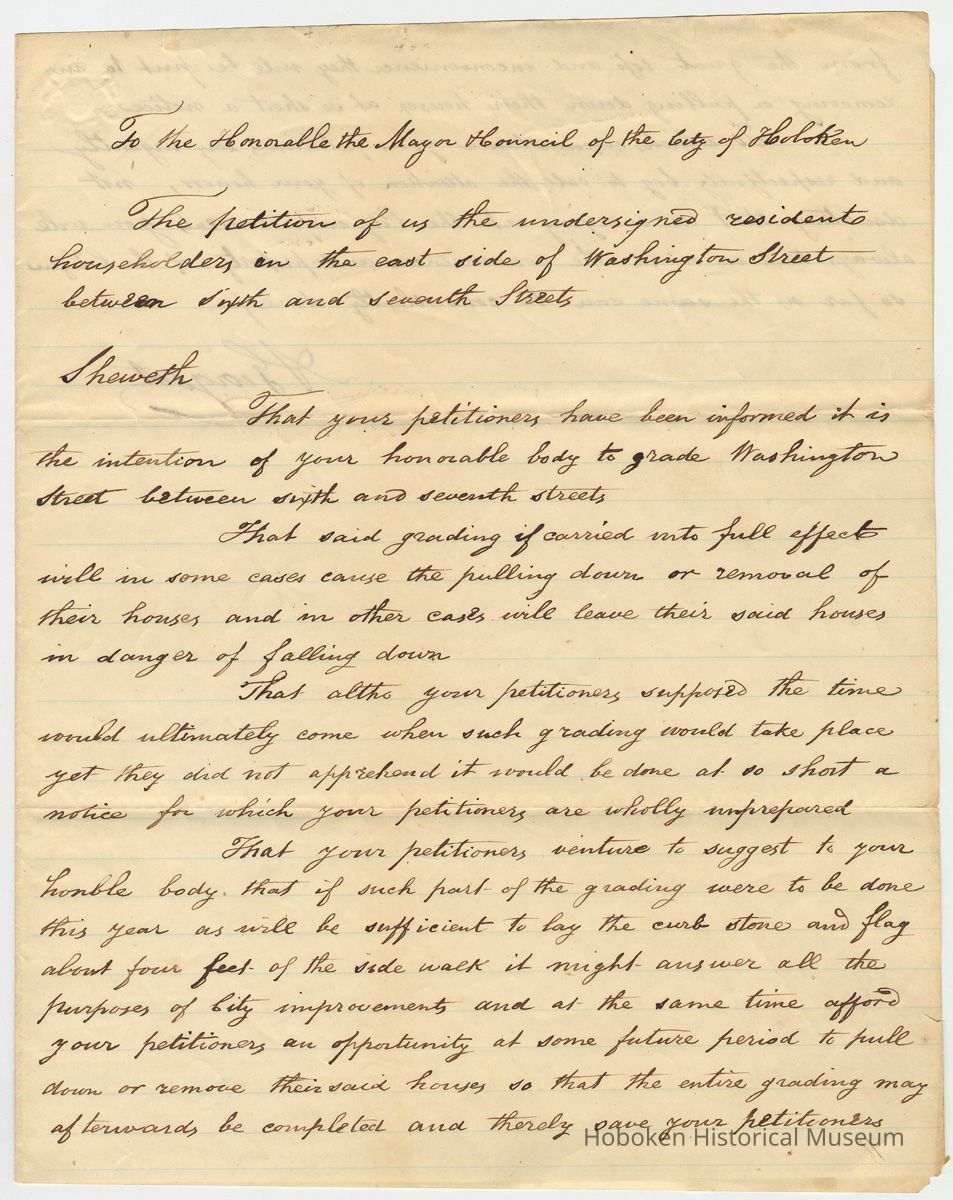 To the Honorable the Mayor & Council of the City of Hoboken
The petition of us the undersigned resident
householders on the east side of Washington Street
between sixth and seventh Streets
Sheweth
That your petitioners have been informed it is
the intention of your honorable body to grade Washington
Street between sixth and seventh streets
That said grading if carried into full effect
will in some cases cause the pulling down or removal of
their houses and in other cases will leave their said houses
in danger of falling down
That altho your petitioners supposed the time
would ultimately come when such grading would take place
yet they did not apprehend it would be done at so short a
notice for which your petitioners are wholly unprepared
That your petitioners venture to suggest to your
honble body that if such part of the grading were to be done
this year as will be sufficient to lay the curb stone and flag
about four feet of the side walk it might answer all the
purposes of City improvements and at the same time afford
your petitioners an opportunity at some future period to pull
down or remove their said houses so that the entire grading may
afterwards be completed and thereby save your petitioners
Hoboken Historical Museum